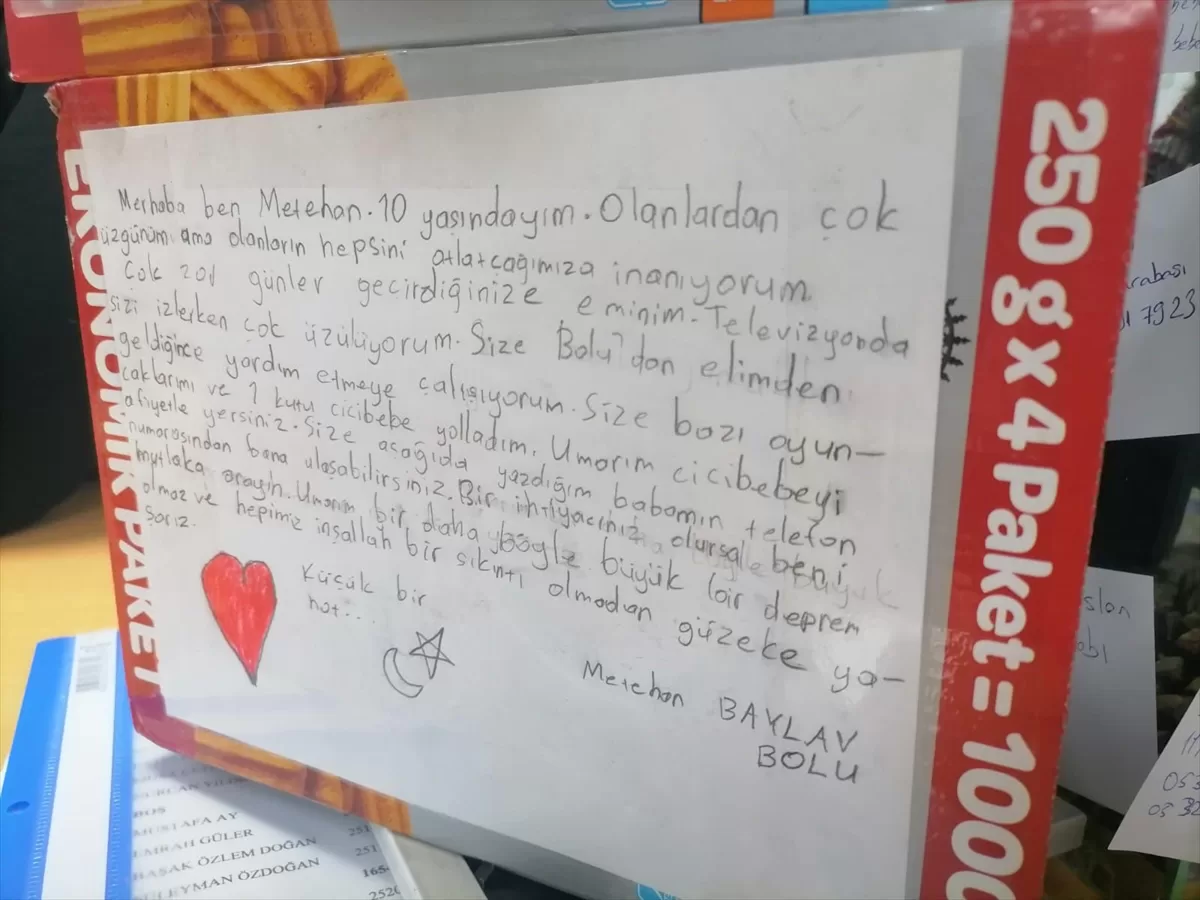 Merhaba ben Metehan. 10 yaşındayım. Olanlardan çok
üzgünüm ama olanların hepsini atlatcağımıza inanıyorum
Çok zor günler geçirdiğinize eminim. Televizyonda
sizi izlerken çok üzülüyorum. Size Bolu'dan elimden
geldiğince yardım etmeye çalışıyorum. Size bazı oyun-
caklarımı ve 1 kutu cicibebe yolladım. Umarım cicibebeyi
afiyetle yersiniz. Size aşağıda yazdığım babamın telefon
numarasından bana ulaşabilirsiniz. Bir ihtiyacınız olursa beni
mutlaka arayın. Umarım bir daha böyle büyük bir deprem
olmaz ve hepimiz inşallah bir sıkıntı olmadan güzelce ya-
şarız.
Küçük bir
not...
Metehan BAYLAV
BOLU
EKONOMİK PAKET
250 g x 4 Paket = 1000
arabası
7923
MUSTAFA AY
EMRAH GÜLER
BAŞAK ÖZLEM DOĞAN
SÜLEYMAN ÖZDOĞAN
251
251